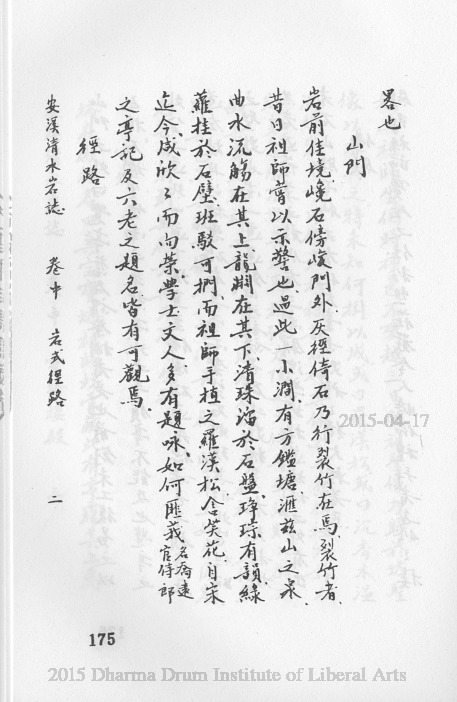 畧也
山門
岩前佳境嶢石傍崚門外灰徑倚石乃行裂竹在焉裂竹者、
昔日祖師嘗以示警也、過此一小澗、有方鑑塘、滙茲山之泉、
曲水流觴在其上、龍湫在其下、清珠溜於石盤、琤琮有韻、綠
蘿挂於石壁、班駁可捫、而祖師手植之羅漢松、含笑花、自宋
迄今、咸欣々而向榮、學士文人、多有題咏、如何匪莪名喬遠官侍郎
之亭記及六老之題名、皆有可觀焉、
徑路
安溪清水岩誌 卷中 岩式徑路 二
175
2015-04-17
2015 Dharma Drum Institute of Liberal Arts